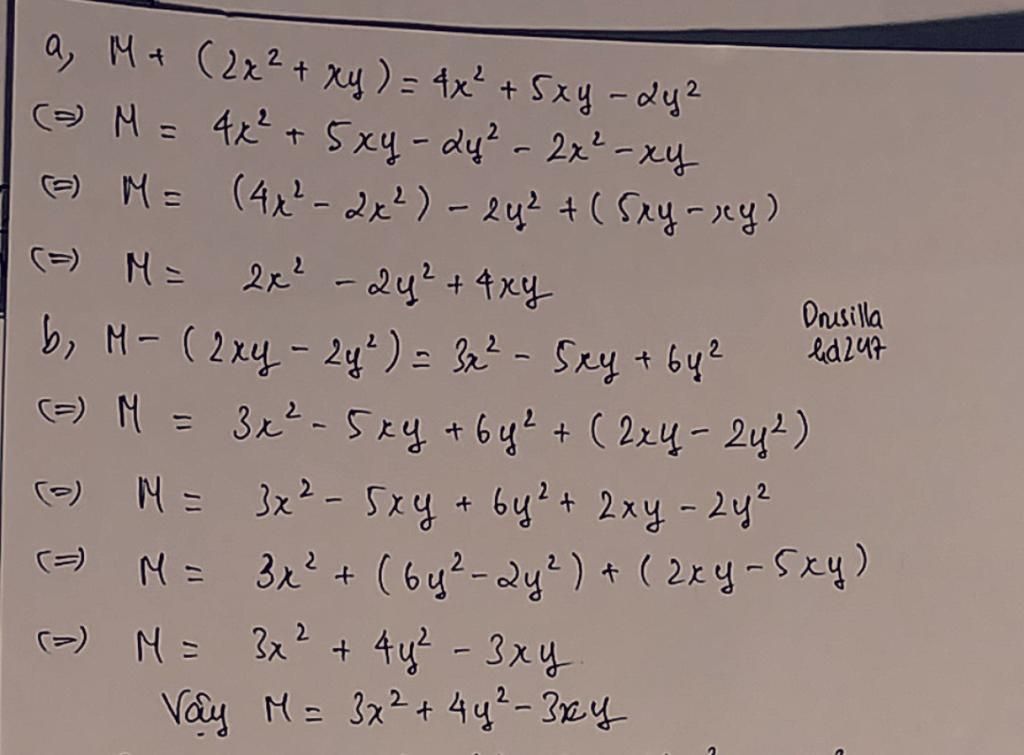 a, M + (2x² + xy) = 4x² + 5xy - 2y²
(=) M = 4x² + 5xy - 2y² - 2x² - xy
(=) M = (4x² - 2x²) - 2y² + (5xy - xy)
(=) M = 2x² - 2y² + 4xy
Drusilla
b, M - (2xy - 2y²) = 3x² - 5xy + 6y²
(=) M = 3x² - 5xy + 6y² + (2xy - 2y²)
(=) M = 3x² - 5xy + 6y² + 2xy - 2y²
(=) M = 3x² + (6y² - 2y²) + (2xy - 5xy)
(=) M = 3x² + 4y² - 3xy
Vậy M = 3x² + 4y² - 3xy